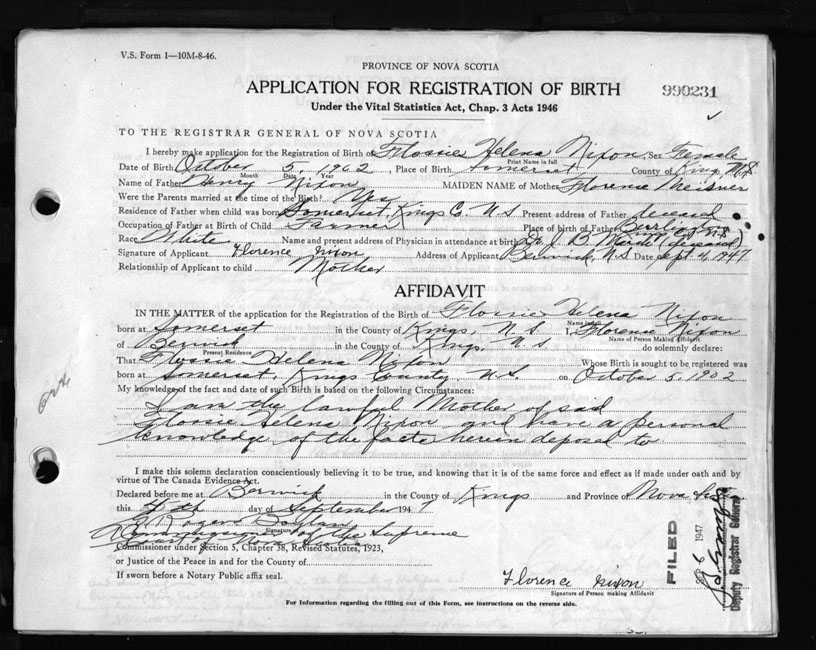 V.S. Form 1—10M-8-46.
PROVINCE OF NOVA SCOTIA
APPLICATION FOR REGISTRATION OF BIRTH 990231
Under the Vital Statistics Act, Chap. 3 Acts 1946
TO THE REGISTRAR GENERAL OF NOVA SCOTIA
I hereby make application for the Registration of Birth of Flossie Helena Nixon, Sex Female
Print Name in full
Date of Birth October 5, 1902, Place of Birth Somerset County of Kings N.S.
Month Date Year
Name of Father Henry Nixon MAIDEN NAME of Mother Florence Meisner
Were the Parents married at the time of the Birth? Yes
Residence of Father when child was born Somerset, Kings Co. N.S. Present address of Father deceased
Occupation of Father at Birth of Child Farmer Place of birth of Father
Race White Name and present address of Physician in attendance at birth Dr. J. B. (deceased)
Signature of Applicant Florence Nixon Address of Applicant Berwick, N.S. Date Sept 4, 1947
Relationship of Applicant to child Mother
AFFIDAVIT
IN THE MATTER of the application for the Registration of the Birth of Flossie Helena Nixon
Name in full
born at Somerset in the County of Kings, N.S. I, Florence Nixon
Name of Person Making Affidavit
of Berwick in the County of Kings, N.S. do solemnly declare:
Present Residence
That Flossie Helena Nixon Whose Birth is sought to be registered was
born at Somerset, Kings County, N.S. on October 5, 1902
My knowledge of the fact and date of such Birth is based on the following Circumstances:
I am the lawful Mother of said
Flossie Helena Nixon and have a personal
knowledge of the facts herein deposed to
I make this solemn declaration conscientiously believing it to be true, and knowing that it is of the same force and effect as if made under oath and by
virtue of The Canada Evidence Act.
Declared before me at Berwick in the County of Kings and Province of Nova Scotia
this 4th day of September 1947
Signature
Commissioner of the Supreme
Court of Nova Scotia
Commissioner under Section 5, Chapter 38, Revised Statutes, 1923,
or Justice of the Peace in and for the County of
If sworn before a Notary Public affix seal.
Florence Nixon
Signature of Person making Affidavit
For Information regarding the filling out of this Form, see instructions on the reverse side.
FILED
SEP 6 1947
Deputy Registrar General